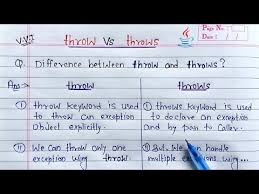 V.V.I throw Vs throws
Page No.
Date
Q. Difference between throw and throws?
Ans→ throw throws
(i) throw keyword is used
to throw an exception
object explicitly.
(i) throws keyword is used
to declare an exception
and by pass to caller.
(ii) We can throw only one
exception using throw.
(ii) But. We can handle
multiple exceptions using...